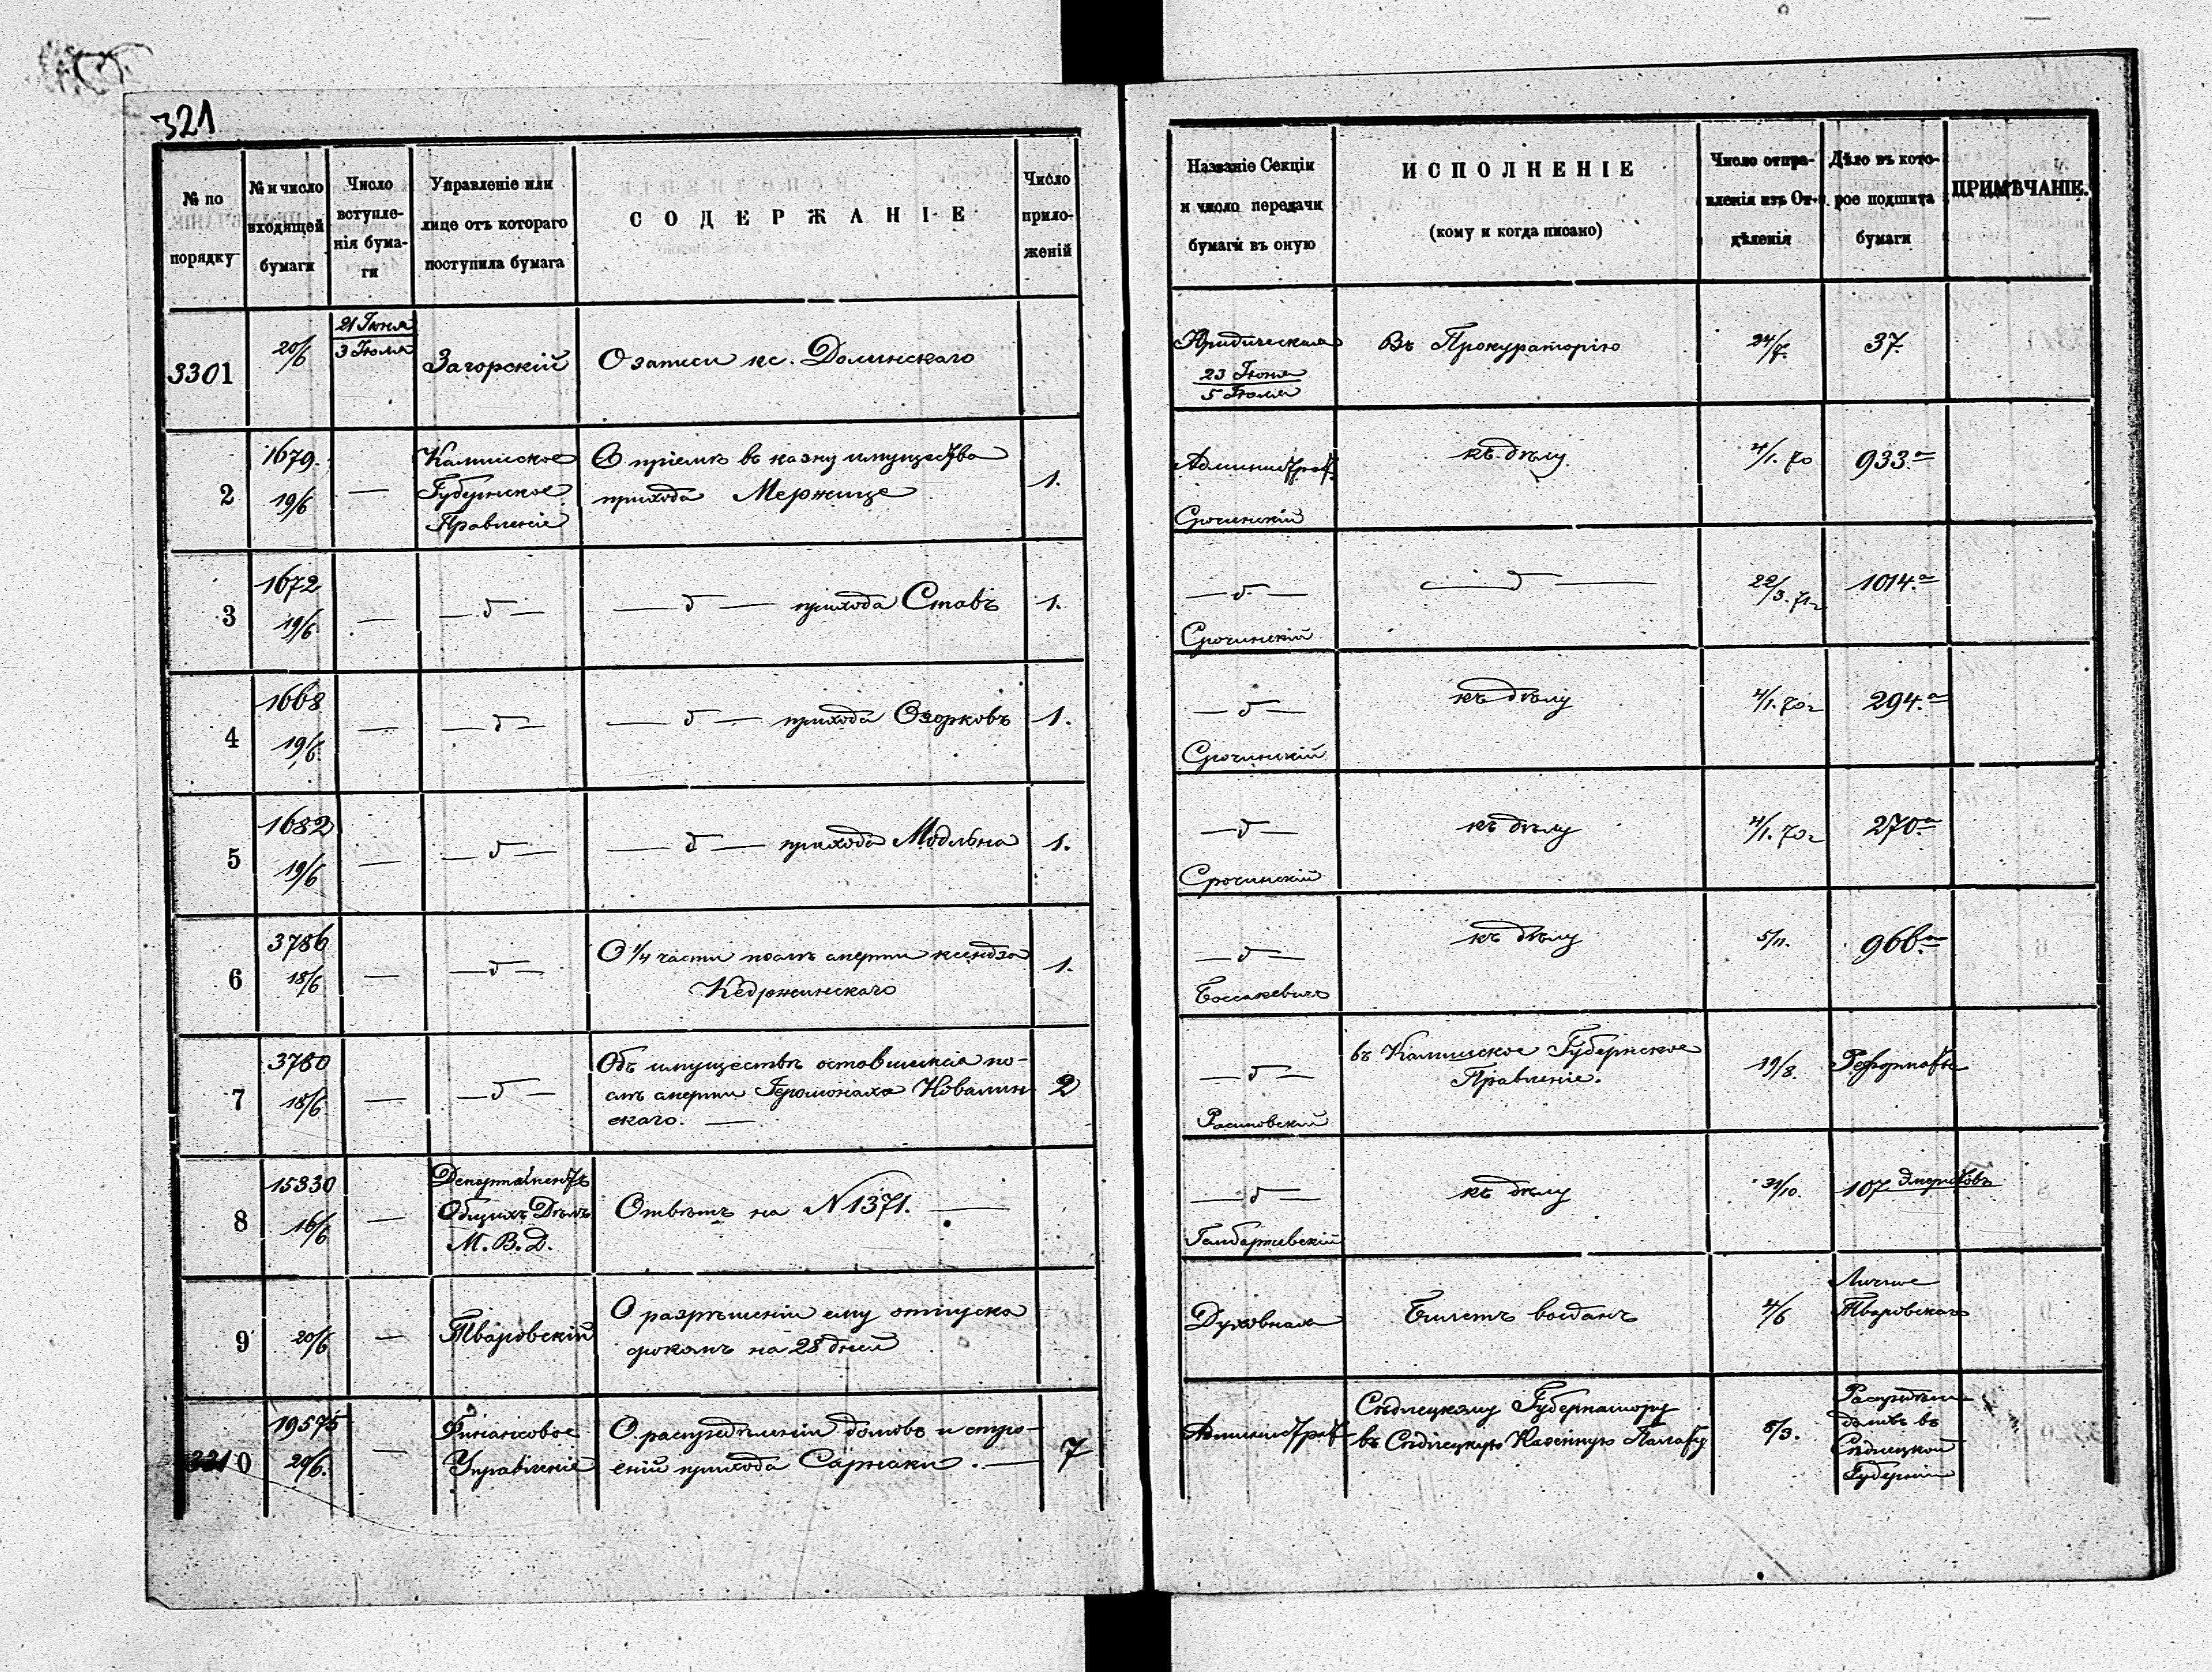 321
№ по порядку | № и число входящей бумаги | Число вступленія бумаги | Управленіе или лице отъ котораго поступила бумага | СОДЕРЖАНІЕ | Число приложеній | Названіе Секціи и число передачи бумаги въ оную | ИСПОЛНЕНІЕ (кому и когда писано) | Число отправленія изъ Отдѣленія | Дѣло въ которое подшита бумаги | ПРИМѢЧАНІЕ.
3301 | 20/6 | 21 Іюня / 3 Іюля | Загорскій | О записи кс. Долинскаго | | Юридическая 23 Іюня / 5 Іюля | Въ Прокураторію | 24/7. | 37.
2 | 1679. 19/6 | — | Калишское Губернское Правленіе | О пріемѣ въ казну имущества прихода Мержице | 1. | Административ. Срочинскій | къ дѣлу | 4/1. 70 | 933.а
3 | 1672 19/6 | — | — б — | — б — прихода Ставъ | 1. | — б — Срочинскій | — б — | 22/3. 71г | 1014.а
4 | 1668 19/6. | — | — б — | — б — прихода Озорковъ | 1. | — б — Срочинскій | къ дѣлу | 4/1. 70г | 294.а
5 | 1682 19/6 | — | — б — | — б — прихода Модльна | 1. | — б — Срочинскій | къ дѣлу | 4/1. 70г | 270а
6 | 3786 18/6 | — | — б — | О 1/4 части послѣ смерти ксендза Кедржинскаго | 1. | — б — | къ дѣлу | 5/11. | 966.а
7 | 3780 18/6 | — | — б — | Объ имуществѣ оставшемся послѣ смерти Іеромонаха Ковалинскаго. — | 2 | — б — | въ Калишское Губернское Правленіе. | 19/8. | Реформаты
8 | 15330 16/6 | — | Департаментъ Общихъ Дѣлъ М. В. Д. | Отвѣтъ на N 1371. — | | — б — | къ дѣлу | 31/10. | 107 Эмеритовъ
9 | 20/6 | — | Тваровскій | О разрѣшеніи ему отпуска срокомъ на 28 дней | | Духовная | Билетъ выданъ | 4/6 | Личное Тваровскаго
3310 | 19575 20/6. | — | Финансовое Управленіе | О распредѣленіи домовъ и строеній прихода Сарнаки. — | 7 | Администрат. | Сѣдлецкому Губернатору въ Сѣдлецкую Казенную Палату | 5/3. | домовъ въ Сѣдлецкой Губерніи